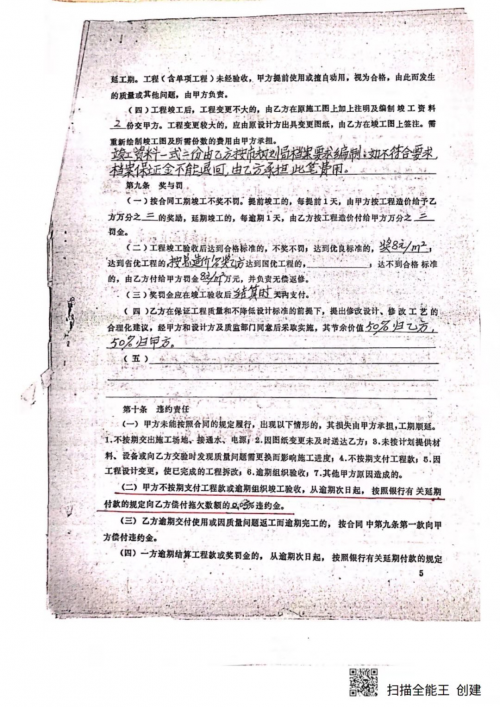 延工期。工程（含单项工程）未经验收，甲方提前使用或擅自动用，视为合格，由此而发生
的质量或其他问题，由甲方负责。
（四）工程竣工后，工程变更不大的，由乙方在原施工图上加上注明及编制竣工资料
2 份交甲方。工程变更较大的，应由原设计方出具变更图纸，由乙方在竣工图上签注。需
重新绘制竣工图及所需份数的费用由甲方承担。
竣工资料一式二份由乙方按 档案要求编制；如不符合要求，
档案保证金不能退回，由乙方承担此笔费用。
第九条 奖与罚
（一）按合同工期竣工不奖不罚。提前竣工的，每提前1天，由甲方按工程造价给予乙
方万分之 三 的奖励，延期竣工的，每逾期1天，由乙方按工程造价付给甲方万分之 三
罚金。
（二）工程竣工验收后达到合格标准的，不奖不罚；达到优良标准的，奖8元/m²，
达到省优工程的 按总造价 奖乙方 达到国优工程的 ，达不到合格标准
的，由乙方付给甲方罚金8元/m²万元，并负责无偿返修。
（三）奖罚金应在竣工验收后 结算时 天内支付。
（四）乙方在保证工程质量和不降低设计标准的前提下，提出修改设计、修改工艺的
合理化建议，经甲方和设计方及质监部门同意后采取实施，其节余价值 50%归乙方，
50%归甲方。
（五）
第十条 违约责任
（一）甲方未能按照合同的规定履行，出现以下情形的，其损失由甲方承担，工期顺延。
1.不按期交出施工场地、接通水、电源；2.因图纸变更未及时送达乙方；3.未按计划提供材
料、设备或向乙方交验时发现质量问题需更换而影响施工进度；4.不按期支付工程款；5.因
工程设计变更，使已完成的工程拆改；6.逾期组织验收；7.其他甲方原因造成的。
（二）甲方不按期支付工程款或逾期组织竣工验收，从逾期次日起，按照银行有关延期
付款的规定向乙方偿付拖欠数额的 违约金。
（三）乙方逾期交付使用或因质量问题返工而逾期完工的，按合同中第九条第一款向甲
方偿付违约金。
（四）一方逾期结算工程款或奖罚金的，从逾期次日起，按照银行有关延期付款的规定
5
扫描全能王 创建